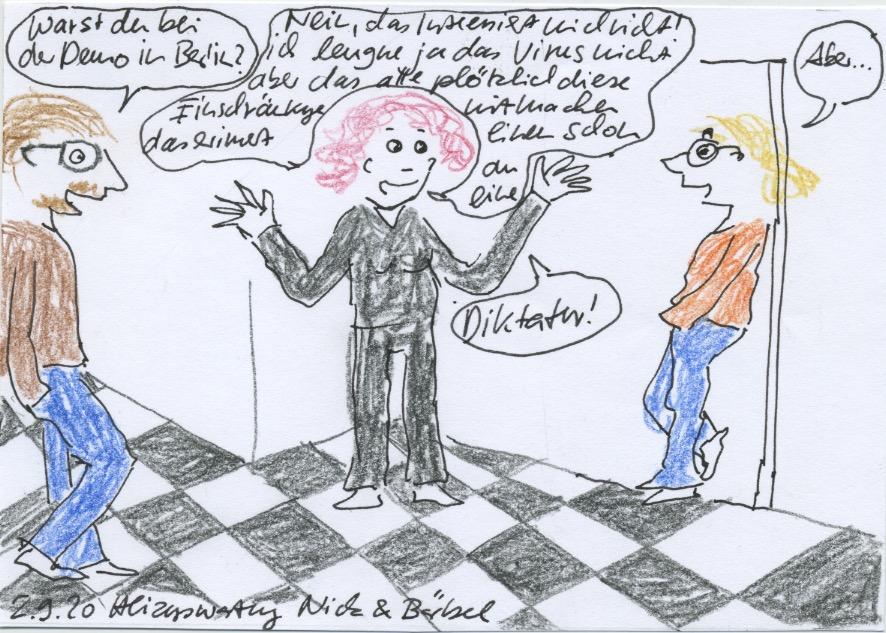 Warst du bei
der Demo in Berlin?
Nein, das interessiert mich nicht!
ich leugne ja das Virus nicht
aber das alle plötzlich diese
Einschränkunge mitmachen
das erinnert einen schon
an
eine
Diktatur!
Aber...
2.9.20 & Bärbel